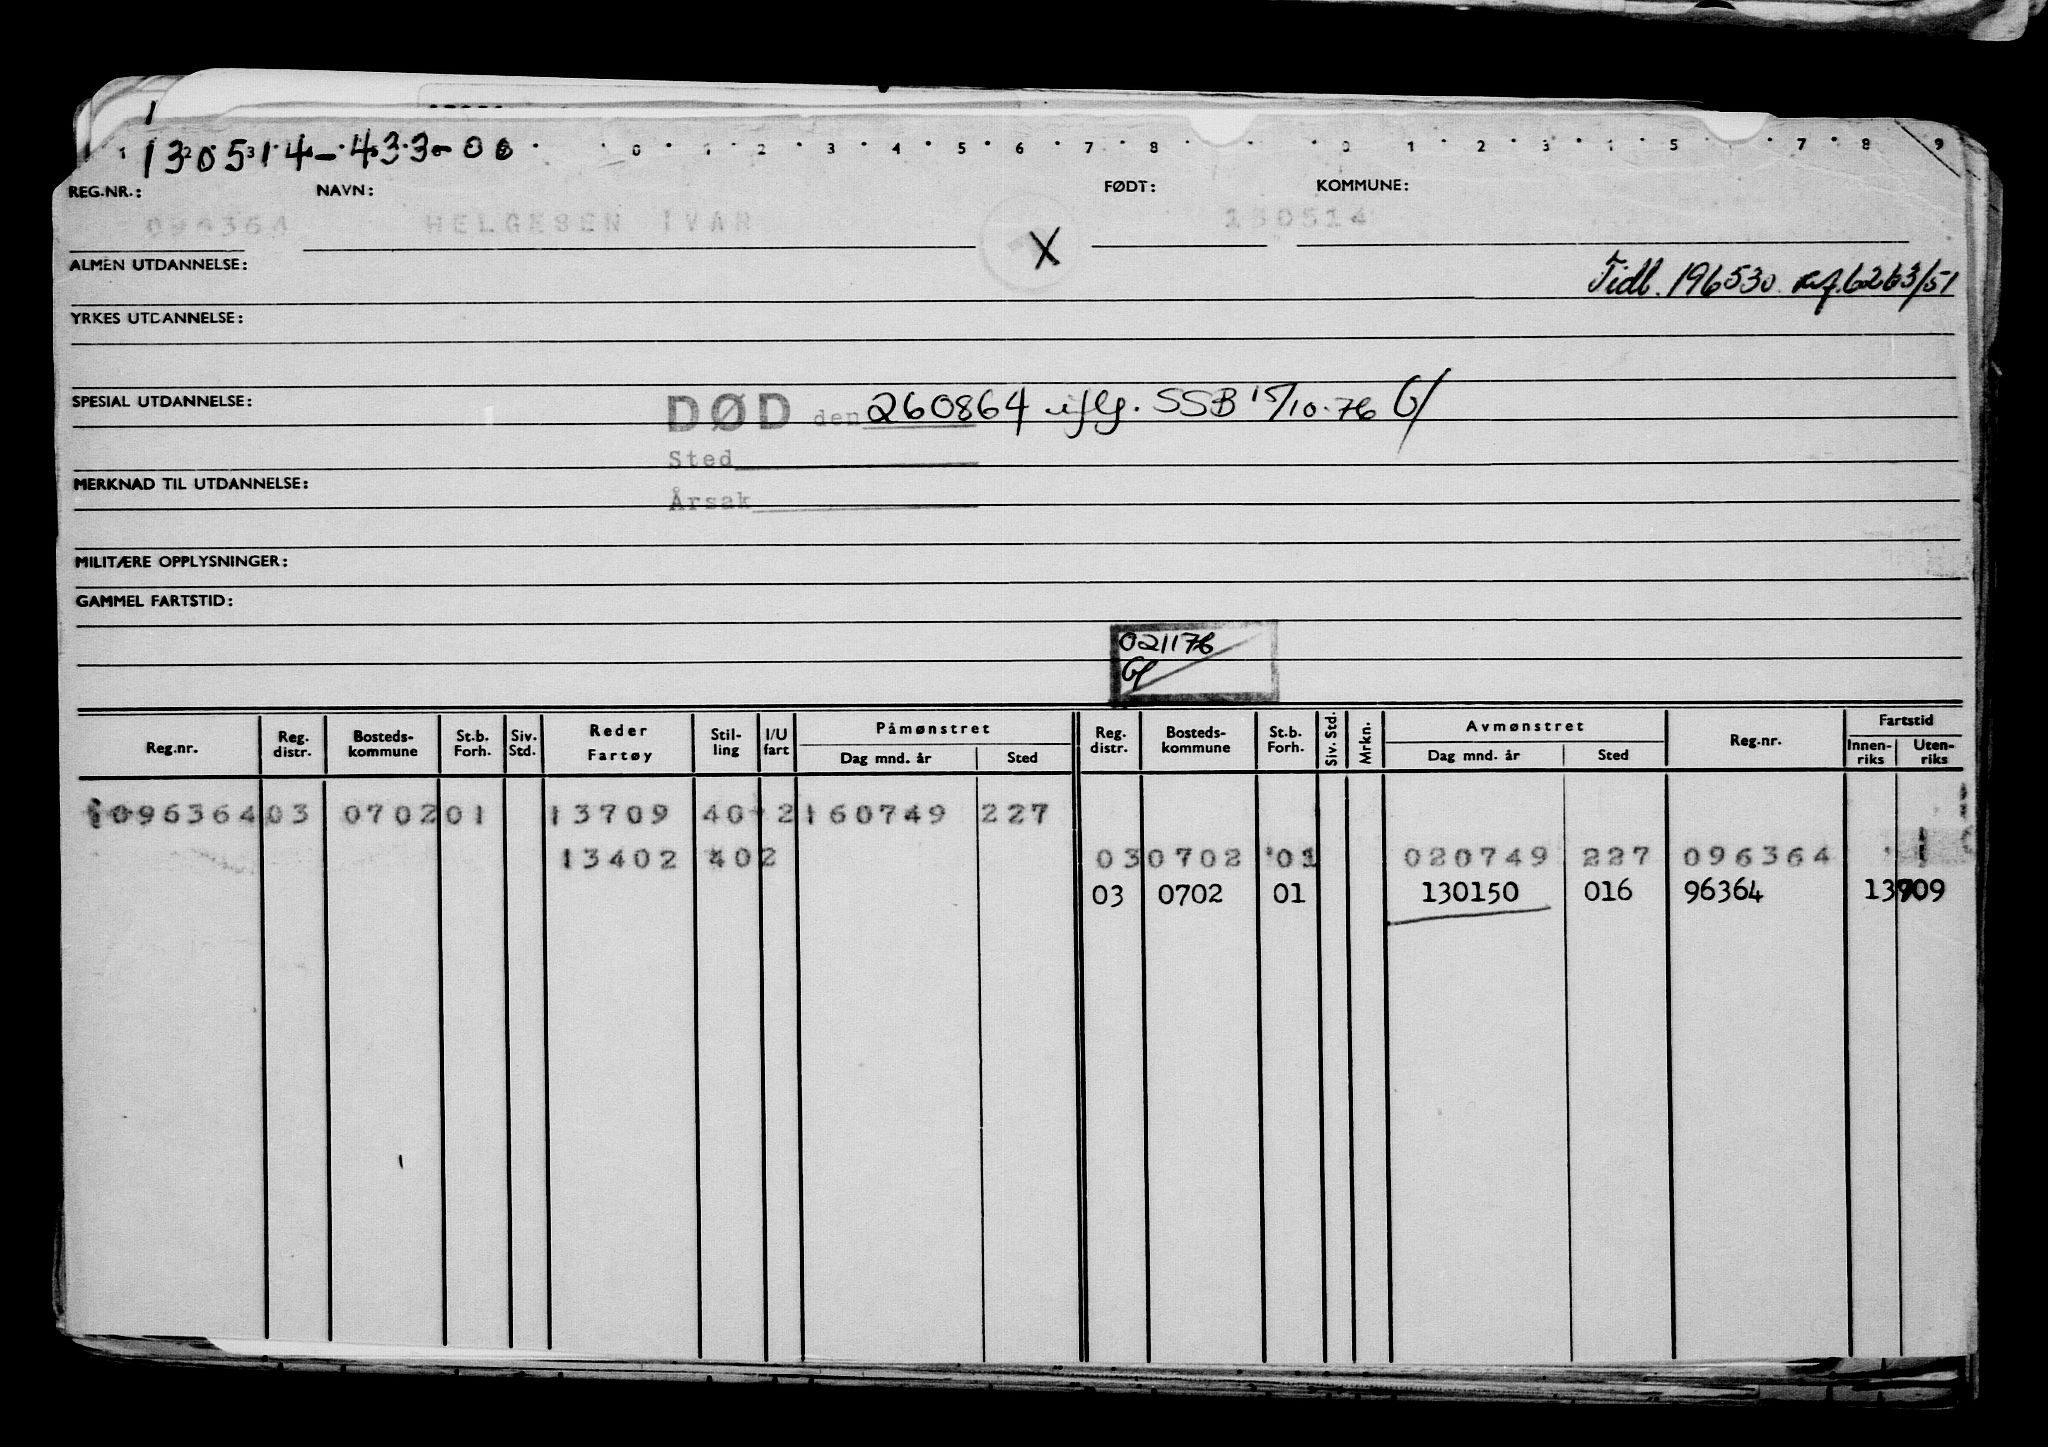 130514-43300
0 1 2 3 4 5 6 7 8 0 1 2 3 4 5 7 8 9
REG.NR.: NAVN: FØDT: KOMMUNE:
096364 HELGESEN IVAR 130514
X
ALMEN UTDANNELSE: Tidl. 196530 ref. 6263/51
YRKES UTDANNELSE:
SPESIAL UTDANNELSE: DØD den 260864 iflg. SSB 15/10-76
Sted
MERKNAD TIL UTDANNELSE:
Årsak
MILITÆRE OPPLYSNINGER:
GAMMEL FARTSTID:
021176
Reg.nr. Reg. distr. Bosteds-kommune St.b. Forh. Siv. Std. Reder Fartøy Stil-ling I/U fart Påmønstret Dag mnd. år Sted Reg. distr. Bosteds-kommune St.b. Forh. Siv. Std. Mrkn. Avmønstret Dag mnd. år Sted Reg.nr. Fartstid Innen-riks Uten-riks
096364 03 0702 01 13709 40 2 160749 227
13402 40 2 03 0702 01 020749 227 096364
03 0702 01 130150 016 96364